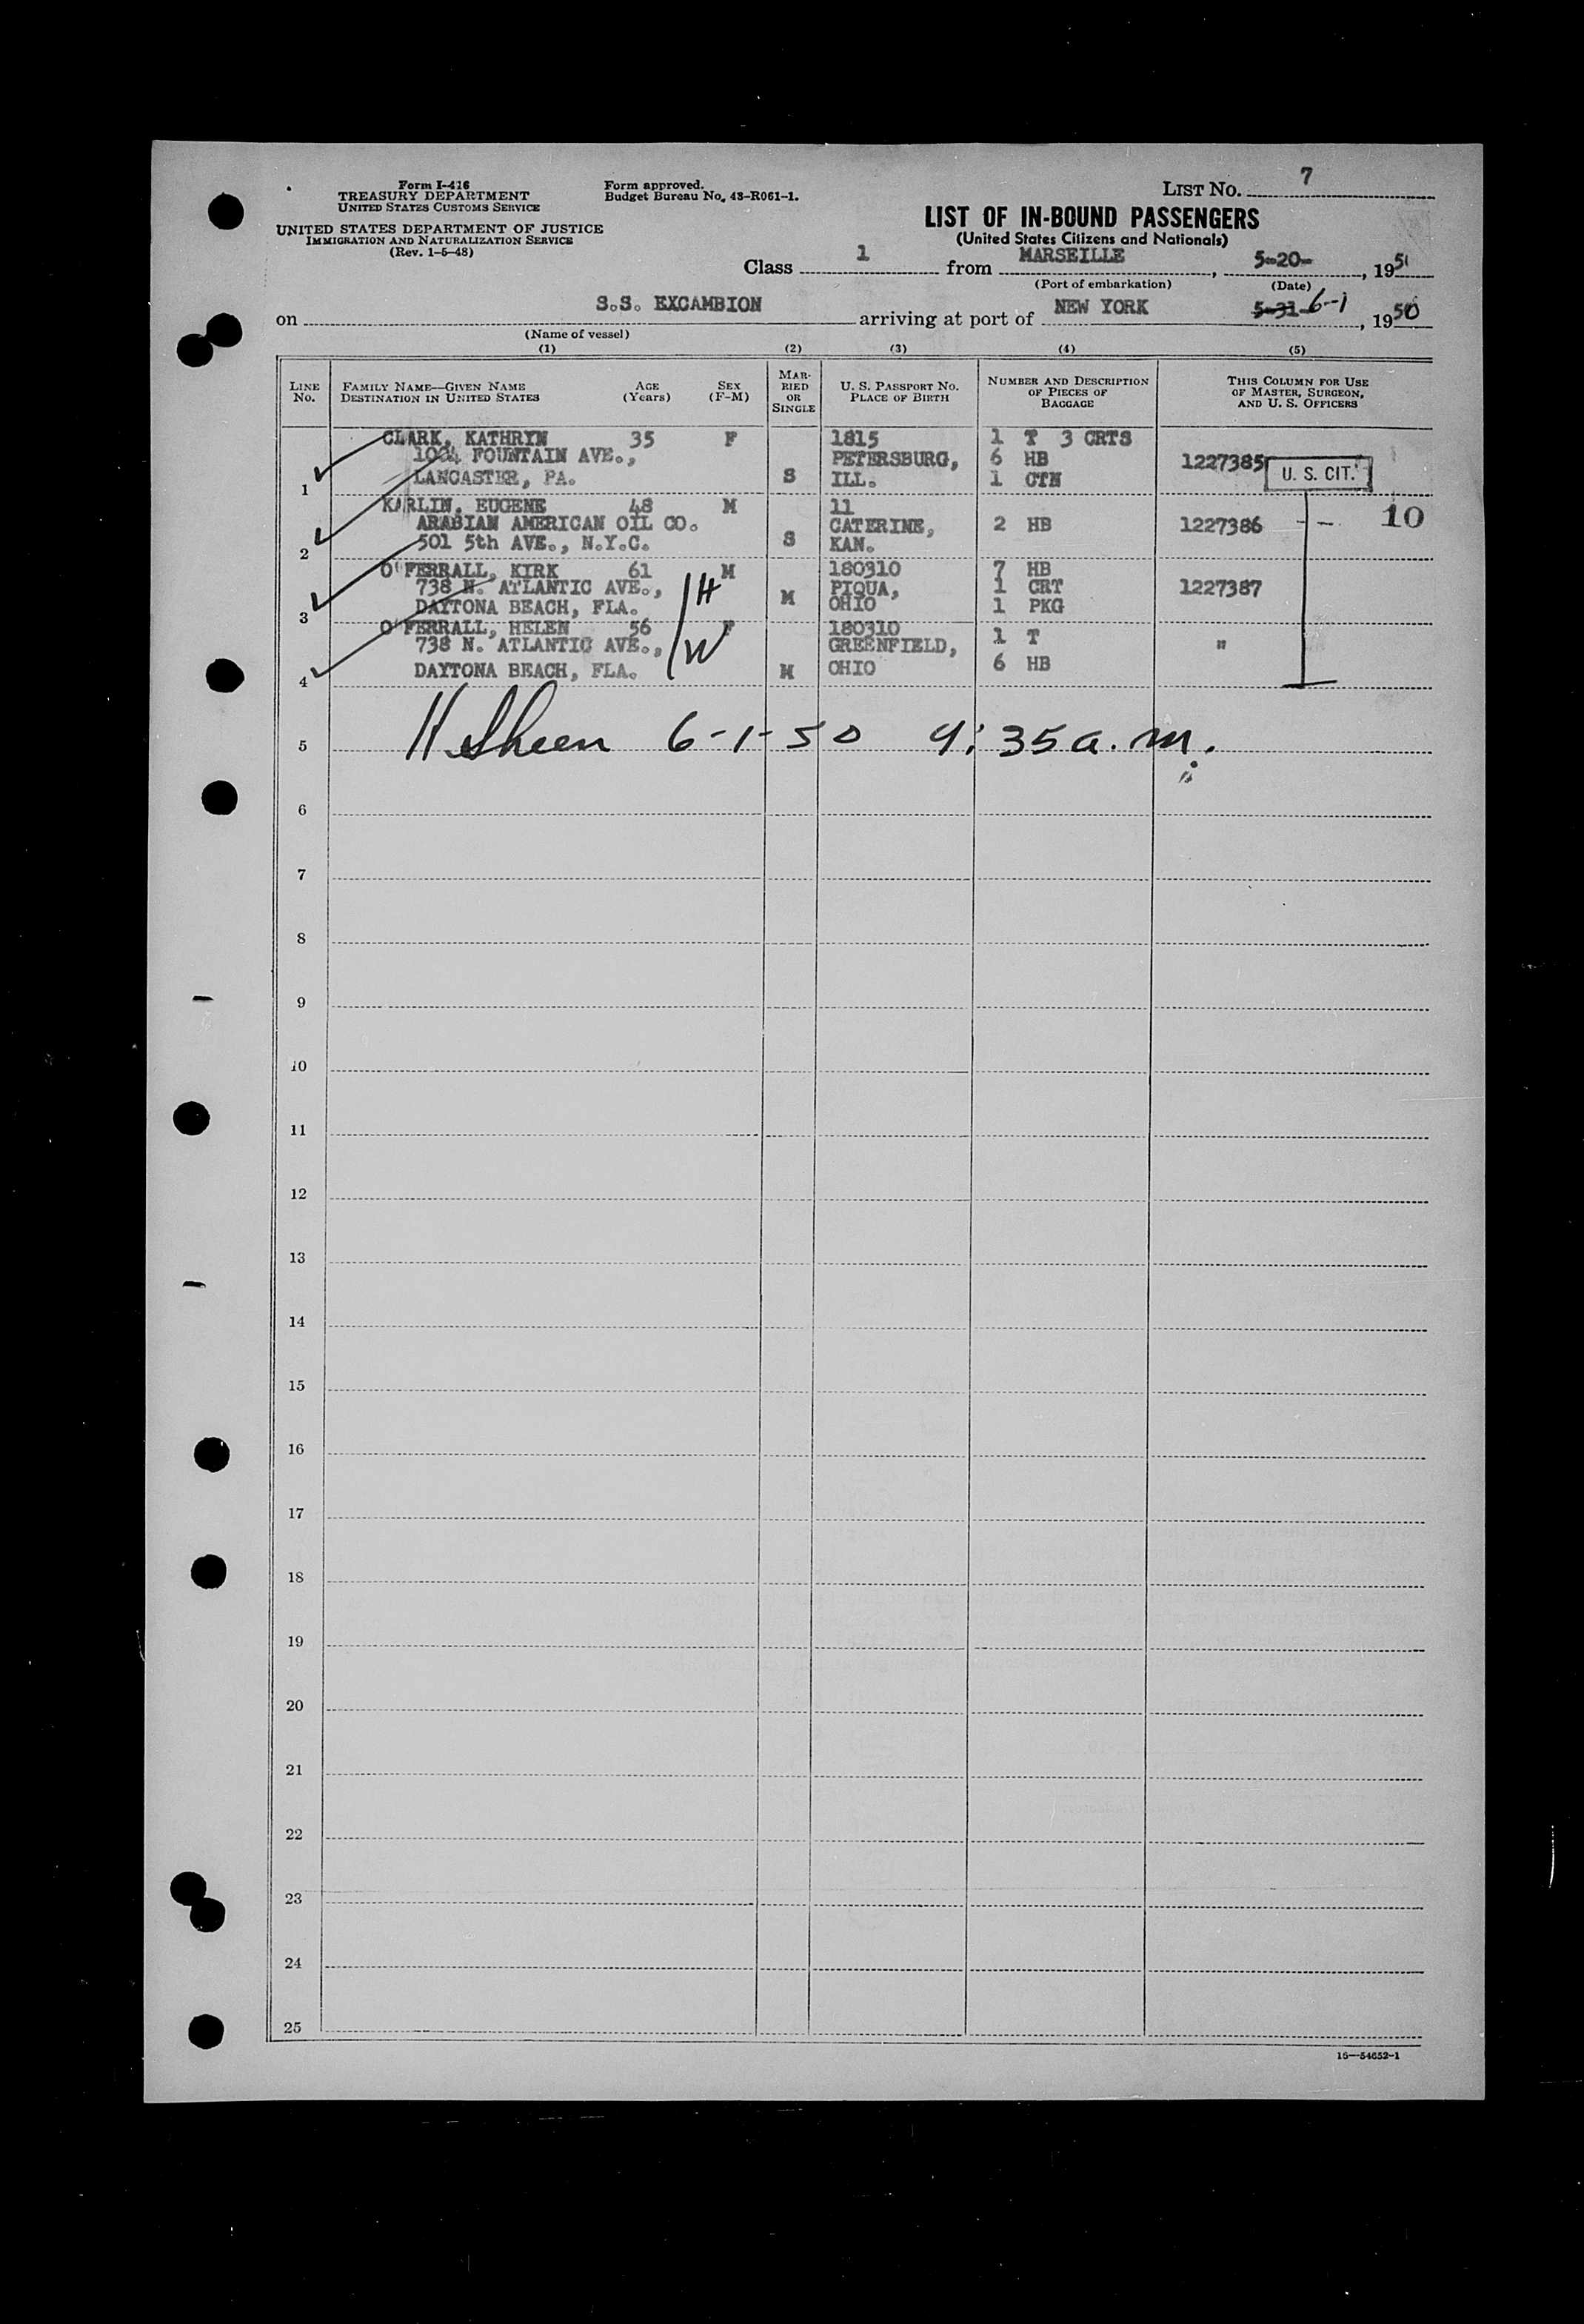 Form I-416
TREASURY DEPARTMENT
UNITED STATES CUSTOMS SERVICE
UNITED STATES DEPARTMENT OF JUSTICE
IMMIGRATION AND NATURALIZATION SERVICE
(Rev. 1-5-48)
Form approved.
Budget Bureau No. 43-R061-1.
LIST NO. 7
LIST OF IN-BOUND PASSENGERS
(United States Citizens and Nationals)
Class 1 from MARSEILLE, 5-20-, 195
(Port of embarkation) (Date)
on S.S. EXCAMBION arriving at port of NEW YORK 5-31- 6-1, 1950
(Name of vessel)
(1) (2) (3) (4) (5)
LINE No. FAMILY NAME—GIVEN NAME DESTINATION IN UNITED STATES AGE (Years) SEX (F-M) MARRIED OR SINGLE U. S. PASSPORT NO. PLACE OF BIRTH NUMBER AND DESCRIPTION OF PIECES OF BAGGAGE THIS COLUMN FOR USE OF MASTER, SURGEON, AND U. S. OFFICERS
CLARK, KATHRYN 35 F 1815 1 T 3 CRTS
FOUNTAIN AVE., PETERSBURG, 6 HB 1227385 U. S. CIT.
1 LANCASTER, PA. S ILL. 1 CTN
KARLIN, EUGENE 48 M 11
ARABIAN AMERICAN OIL CO. CATERINE, 2 HB 1227386 - - 10
2 501 5th AVE., N.Y.C. S KAN.
O'FERRALL, KIRK 61 M 180310 7 HB
738 N. ATLANTIC AVE., H PIQUA, 1 CRT 1227387
3 DAYTONA BEACH, FLA. M OHIO 1 PKG
O'FERRALL, HELEN 56 F 180310 1 T
738 N. ATLANTIC AVE., W GREENFIELD, "
4 DAYTONA BEACH, FLA. M OHIO 6 HB
5 H Sheen 6-1-50 9:35 a.m.
6
7
8
9
10
11
12
13
14
15
16
17
18
19
20
21
22
23
24
25
16—54652-1